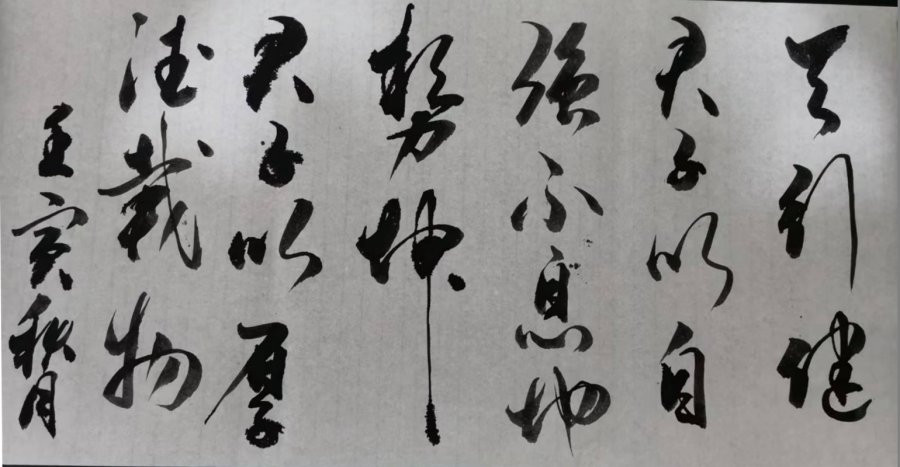 天行健
君子以自
强不息地
势坤
君子以厚
德载物
壬寅秋月